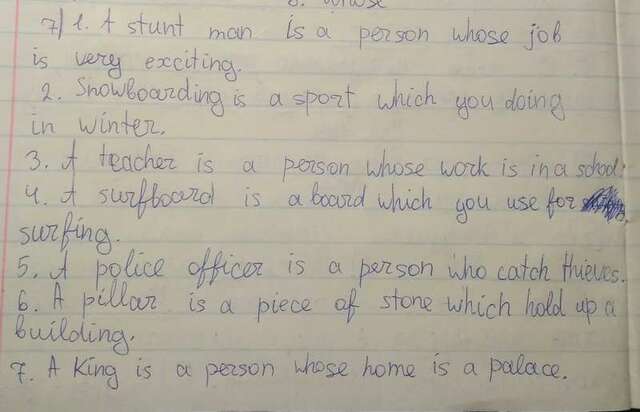 8. whose
7) 1. A stunt man is a person whose job
is very exciting.
2. Snowboarding is a sport which you doing
in winter.
3. A teacher is a person whose work is in a school.
4. A surfboard is a board which you use for
surfing.
5. A police officer is a person who catch thieves.
6. A pillar is a piece of stone which hold up a
building.
7. A King is a person whose home is a palace.